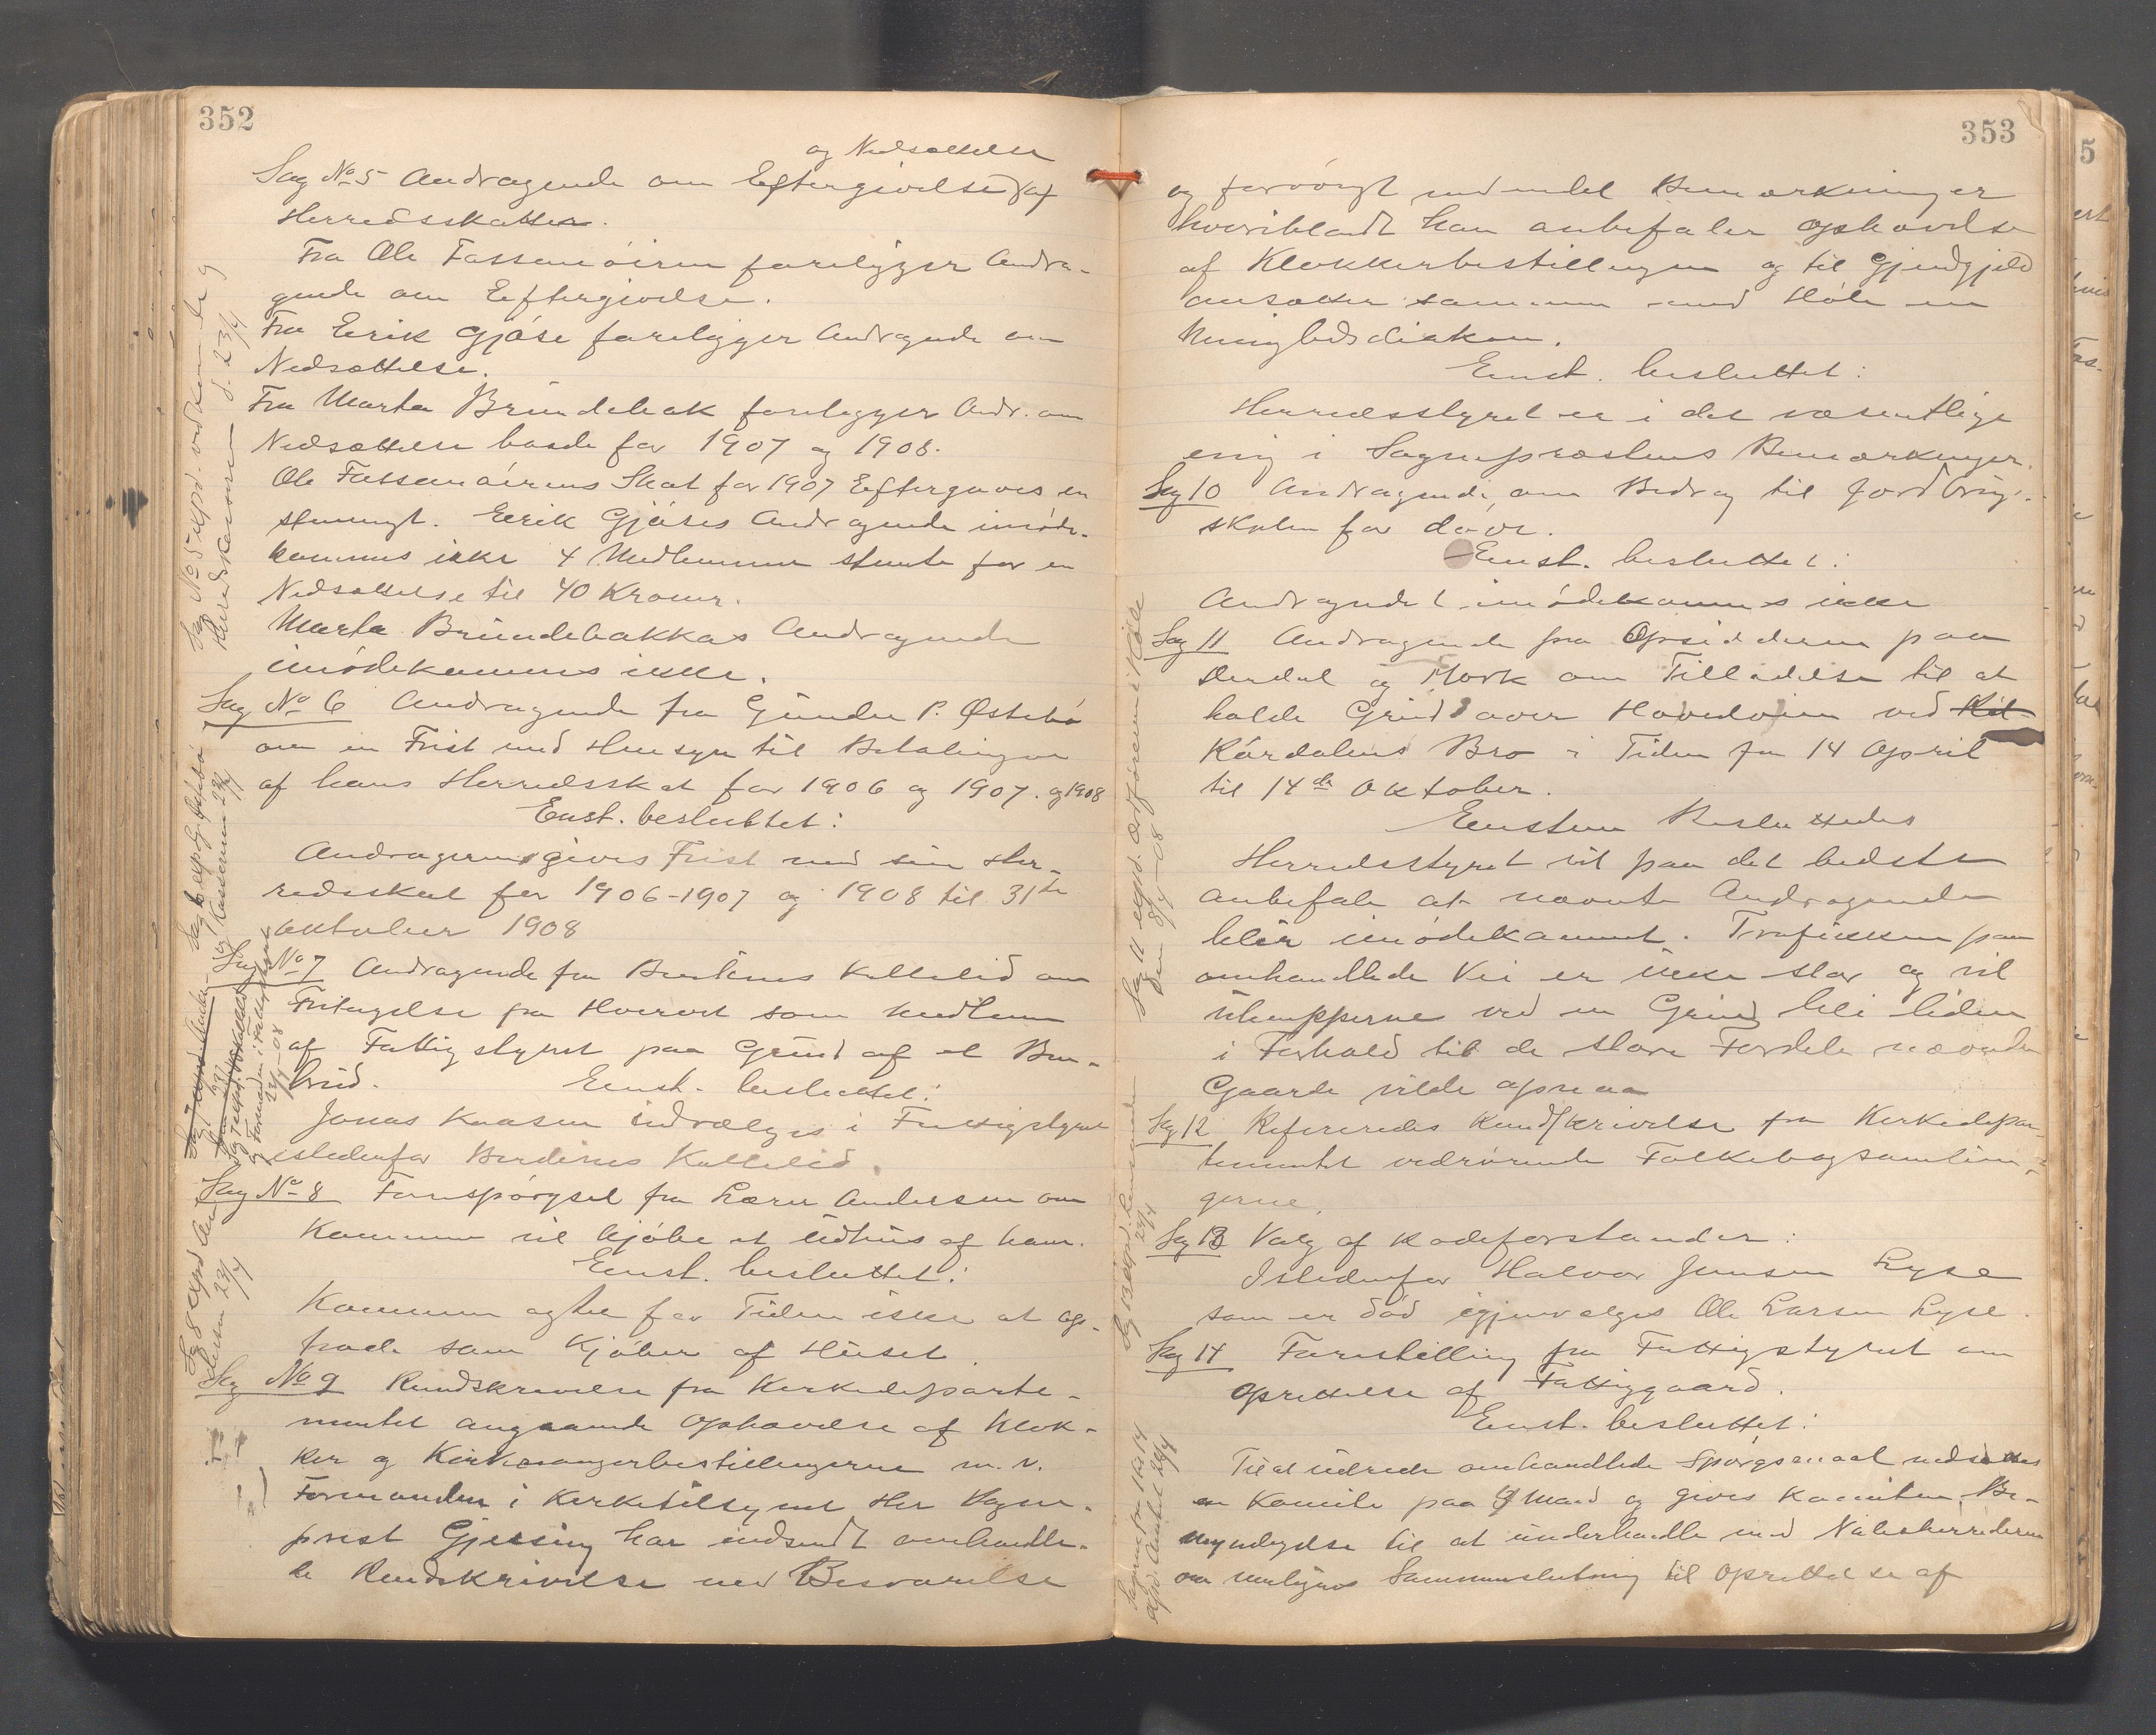 352
og Nedsættelse
Sag No 5 Andragende om Eftergivelse af
Herredsskatten.
Fra Ole Fossanmoiren foreligger Andra-
gende om Eftergivelse.
Fra Eerik Gjøse foreligger Andragende om
Nedsættelse.
Fra Marta Brundebak foreligger Andr. om
Nedsættelse baade for 1907 og 1908.
Ole Skat for 1907 Eftergaves en
stemmigt. Eerik Gjøses Andragende imøde-
kommes ikke 4 Medlemmer stemte for en
Nedsættelse til 40 Kroner.
Marta Brundebakkas Andragende
imødekommes ikke.
Sag No 6 Andragende fra Gunder P. Østebø
om en Frist med Hensyn til Betalingen
af hans Herredsskat for 1906 og 1907. og 1908
Enst. besluttet:
Andrageren gives Frist med sin Her-
redsskat for 1906-1907 og 1908 til 31te
oktober 1908
Sag No 7 Andragende fra Kallelid om
Fritagelse fra Hvervet som Medlem
af Fattigstyret paa Grund af et Ben-
brud. Enst. besluttet:
Jonas Kaasen udvælges i Fattigstyret
istedenfor Kallelid.
Sag No 8 Forespørgsel fra Lærer Andersen om
Kommunen vil kjøbe et Udhus af ham.
Enst. besluttet:
Kommunen agter for Tiden ikke at op-
træde som Kjøber af Huset.
Sag No 9 Rundskrivelse fra Kirkedeparte-
mentet angaaende Ophævelse af Klok-
ker og Kirkesangerbestillingerne m. v.
Formanden i Kirketilsynet Her Sogne-
prest Gjessing har indsendt omhandle-
de Rundskrivelse med Besvarelse
Sag No 5 expd. vedkommende og
Herredskasseren d. 23/4
Sag 6 expd. Østebø
og Kasseren 23/4
Formanden i Fattigstyret
23/4-08
Sag 8 expd An
dersen 23/4
353
og forøvrigt med endel Bemærkninger
hvoriblandt han anbefaler ophævelse
af Klokkerbestillingen og til Gjendgjæld
ansætter sammen med Høle en
Menighedsdiakon.
Enst. besluttet:
Herredsstyret er i det væsentlige
enig i Sognepræstens Bemærkninger.
Sag 10 Andragende om Bidrag til Jordbrug-
skolen for døve.
Enst. besluttet:
Andragendet imødekommes ikke
Sag 11 Andragende fra Opsidderne paa
Dirdal og Mork om Tilladelse til at
holde Grind over Hovedveien ved
Kårdalens Bro i Tiden fra 14 April
til 14de Oktober.
Enstem Besluttedes
Herredsstyret vil paa det bedste
anbefale at nævnte Andragende
blir imødekommet. Trafikken paa
omhandlede Vei er ikke stor og vil
ulemperne ved en Grind bli liden
i Forhold til de store Fordele nævnte
Gaarde vilde opnaa
Sag 12 Refereredes Rundskrivelse fra Kirkedepar-
tementet vedrørende Folkebogsamlin-
gerne.
Sag 13 Valg af Rodeforstander:
Istedenfor Halvor Jensen Lyse
som er død igjenvælges Ole Larsen Lyse.
Sag 14 Forestilling fra Fattigstyret om
Oprettelse af Fattiggaard.
Enst. besluttet:
Til at udrede omhandlede Spørgsmaal nedsættes
en Komite paa 4 Mand og gives Komiteen Be-
myndigelse til at underhandle med Naboherrederne
om muligens Sammenslutning til Oprettelse af
Sag 11 expd. Ordføreren i Høle
den 8/4-08
Sag 13 expd. Lensmanden
23/4
expd. Amtet 24/4